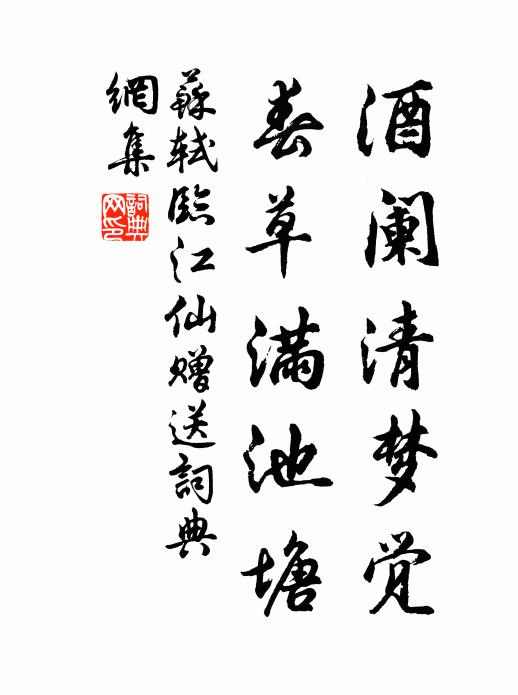 酒阑清梦觉
春草满池塘
蘇軾臨江仙赠送詞典
網集
詞典网印